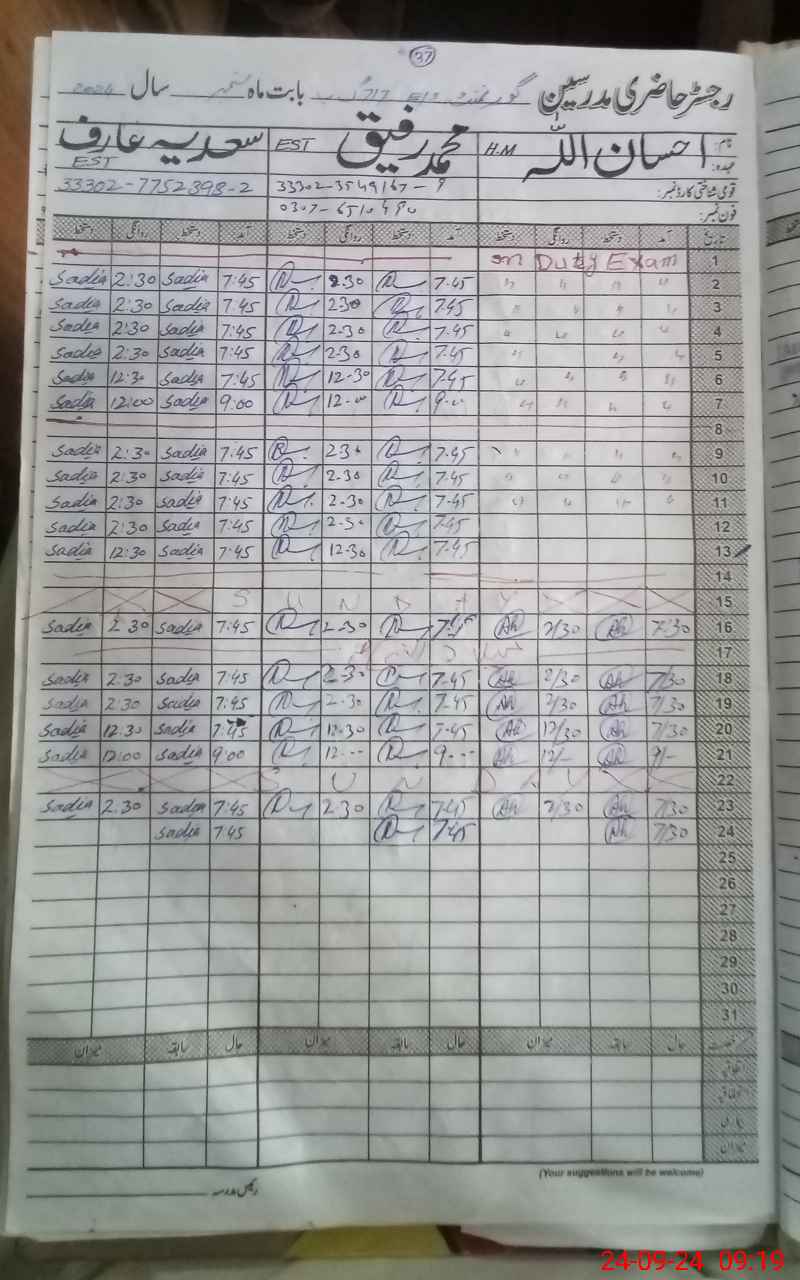 37
رجسٹر حاضری مدرسین گورنمنٹ E/S 717 گ ب بابت ماہ ستمبر سال 2024
نام: احسان اللہ محمد رفیق سعدیہ عارف
عہدہ: H.M EST EST
قومی شناختی کارڈ نمبر: 33302-7752398-2
فون نمبر:
تاریخ آمد دستخط روانگی دستخط آمد دستخط روانگی دستخط آمد دستخط روانگی دستخط
1 on Duty Exam
2 " " " " 7-45 2.30 7:45 Sadia 2:30 Sadia
3 " " " " 7.45 2.30 7:45 Sadia 2:30 Sadia
4 " " " " 7.45 2.30 7:45 Sadia 2:30 Sadia
5 " " " 7.45 2.30 7:45 Sadia 2:30 Sadia
6 " " " " 7.45 12-30 7:45 Sadia 12:30 Sadia
7 " " " " 9.00 12-00 9:00 Sadia 12:00 Sadia
8
9 " " " " 7.45 2.30 7:45 Sadia 2:30 Sadia
10 " " " " 7.45 2.30 7:45 Sadia 2:30 Sadia
11 " " " " 7-45 2.30 7:45 Sadia 2:30 Sadia
12 7.45 2.30 7:45 Sadia 2:30 Sadia
13 7.45 12.30 7:45 Sadia 12:30 Sadia
14
15 S U N D A Y
16 7/30 Ah 2/30 Ah 7.45 2.30 7:45 Sadia 2.30 Sadia
17
18 7/30 Ah 2/30 Ah 7.45 2.30 7:45 Sadia 2:30 Sadia
19 7/30 Ah 2/30 Ah 7.45 2.30 7:45 Sadia 2.30 Sadia
20 7/30 Ah 12/30 Ah 7.45 12.30 7:45 Sadia 12:30 Sadia
21 9/- Ah 12/- Ah 9.-- 12.-- 9:00 Sadia 12:00 Sadia
22 S U N D A Y
23 7/30 Ah 2/30 Ah 7.45 2.30 7:45 Sadia 2:30 Sadia
24 7/30 Ah 7.45 7:45 Sadia
25
26
27
28
29
30
31
رخصت حال سابقہ میزان حال سابقہ میزان حال سابقہ میزان
اتفاقی
بیماری
میزان
(Your suggestions will be welcome)
رئیس مدرسہ
24-09-24 09:19